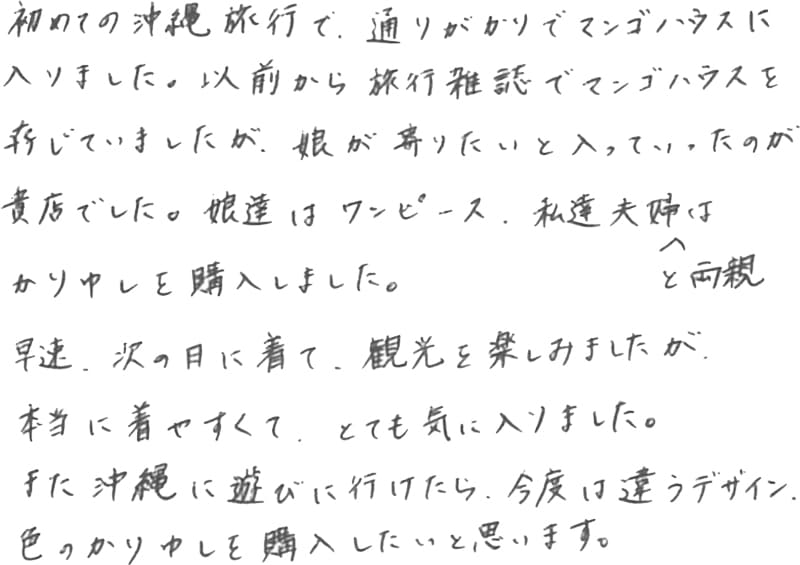 初めての沖縄旅行で、通りがかりでマンゴハウスに
入りました。以前から旅行雑誌でマンゴハウスを
存じていましたが、娘が寄りたいと入っていったのが
貴店でした。娘達はワンピース、私達夫婦は
と両親
かりゆしを購入しました。
早速、次の日に着て、観光を楽しみましたが、
本当に着やすくて、とても気に入りました。
また沖縄に遊びに行けたら、今度は違うデザイン、
色のかりゆしを購入したいと思います。